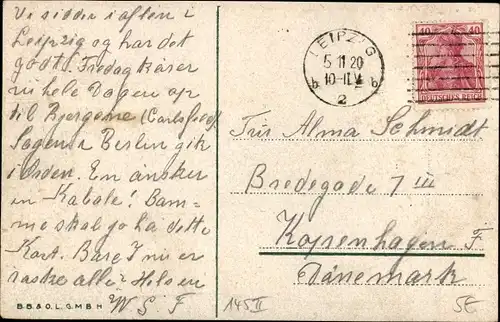 Vi sidder i aften i
Leipzig og har det
godt. Fredag kører
vi hele Dagen op
til Bjergene (Carlsfeld)
Sagen i Berlin gik
i Orden. En ønsker
en Kabale! Bam-
me skal jo ha dette
Kort. Bare I nu er
raske alle? Hilsen
W S F
B.B.&O.L.G.M.B.H
LEIPZIG
5 11 20
10-11 V
b b
2
40 40
DEUTSCHES REICH
Frü Alma Schmidt
Bredegade 7 III
Kopenhagen F.
Dänemark
145 II
SE